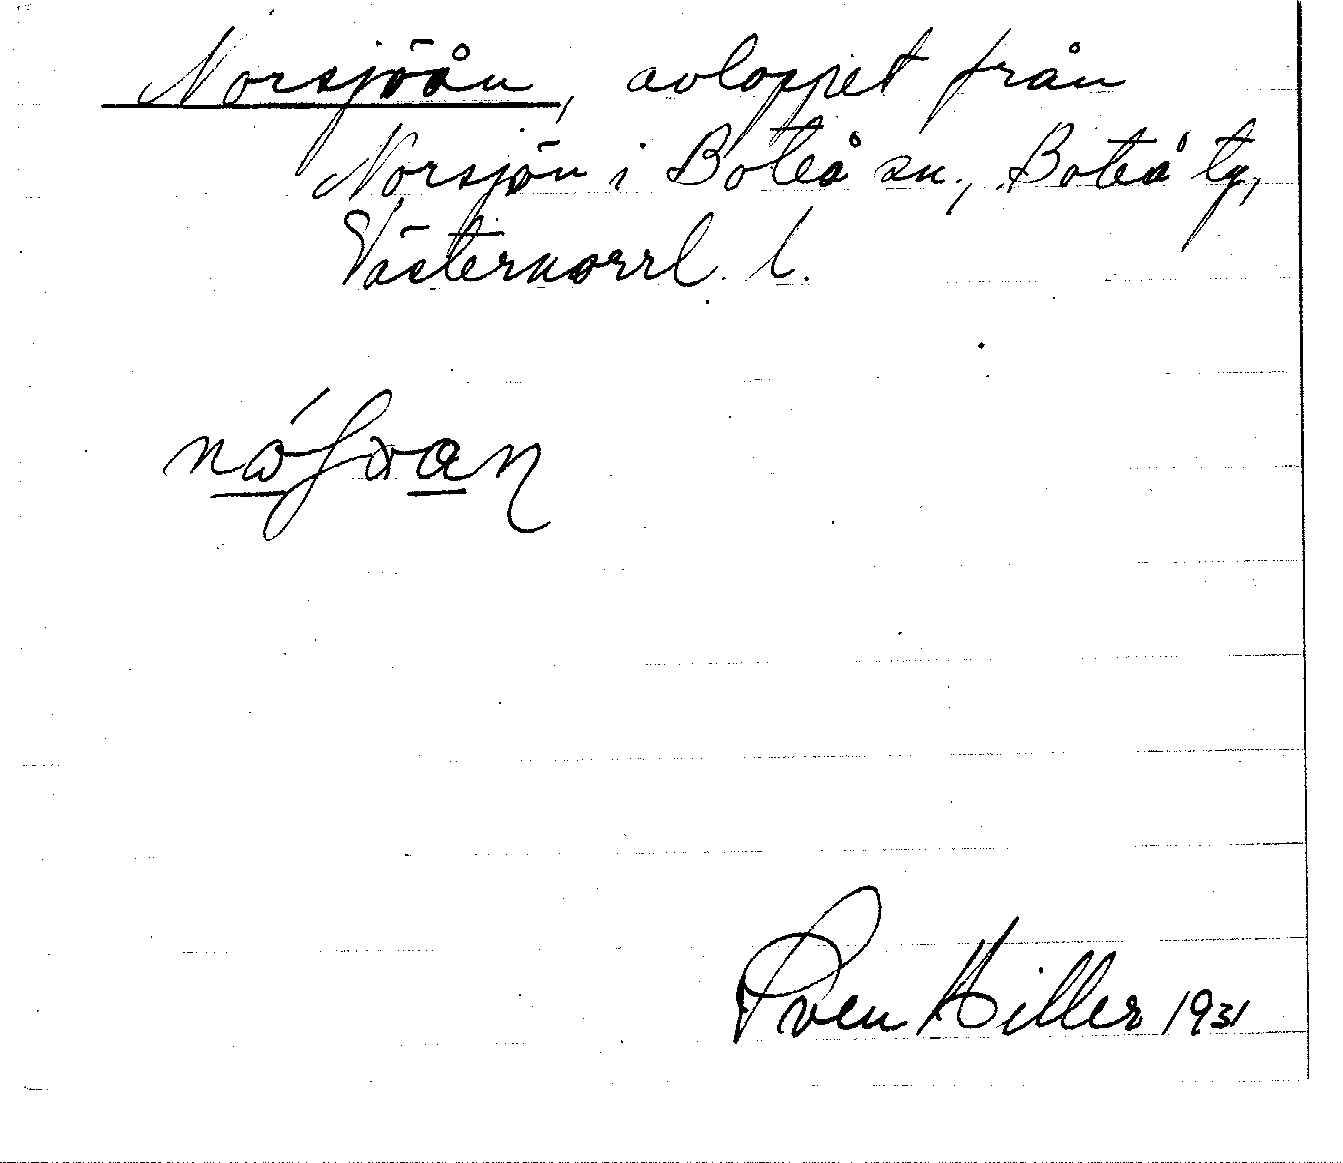 Norsjöån, avloppet från
Norsjön i Boteå sn., Boteå tg,
Västernorrl. l.
Sven Hiller 1931